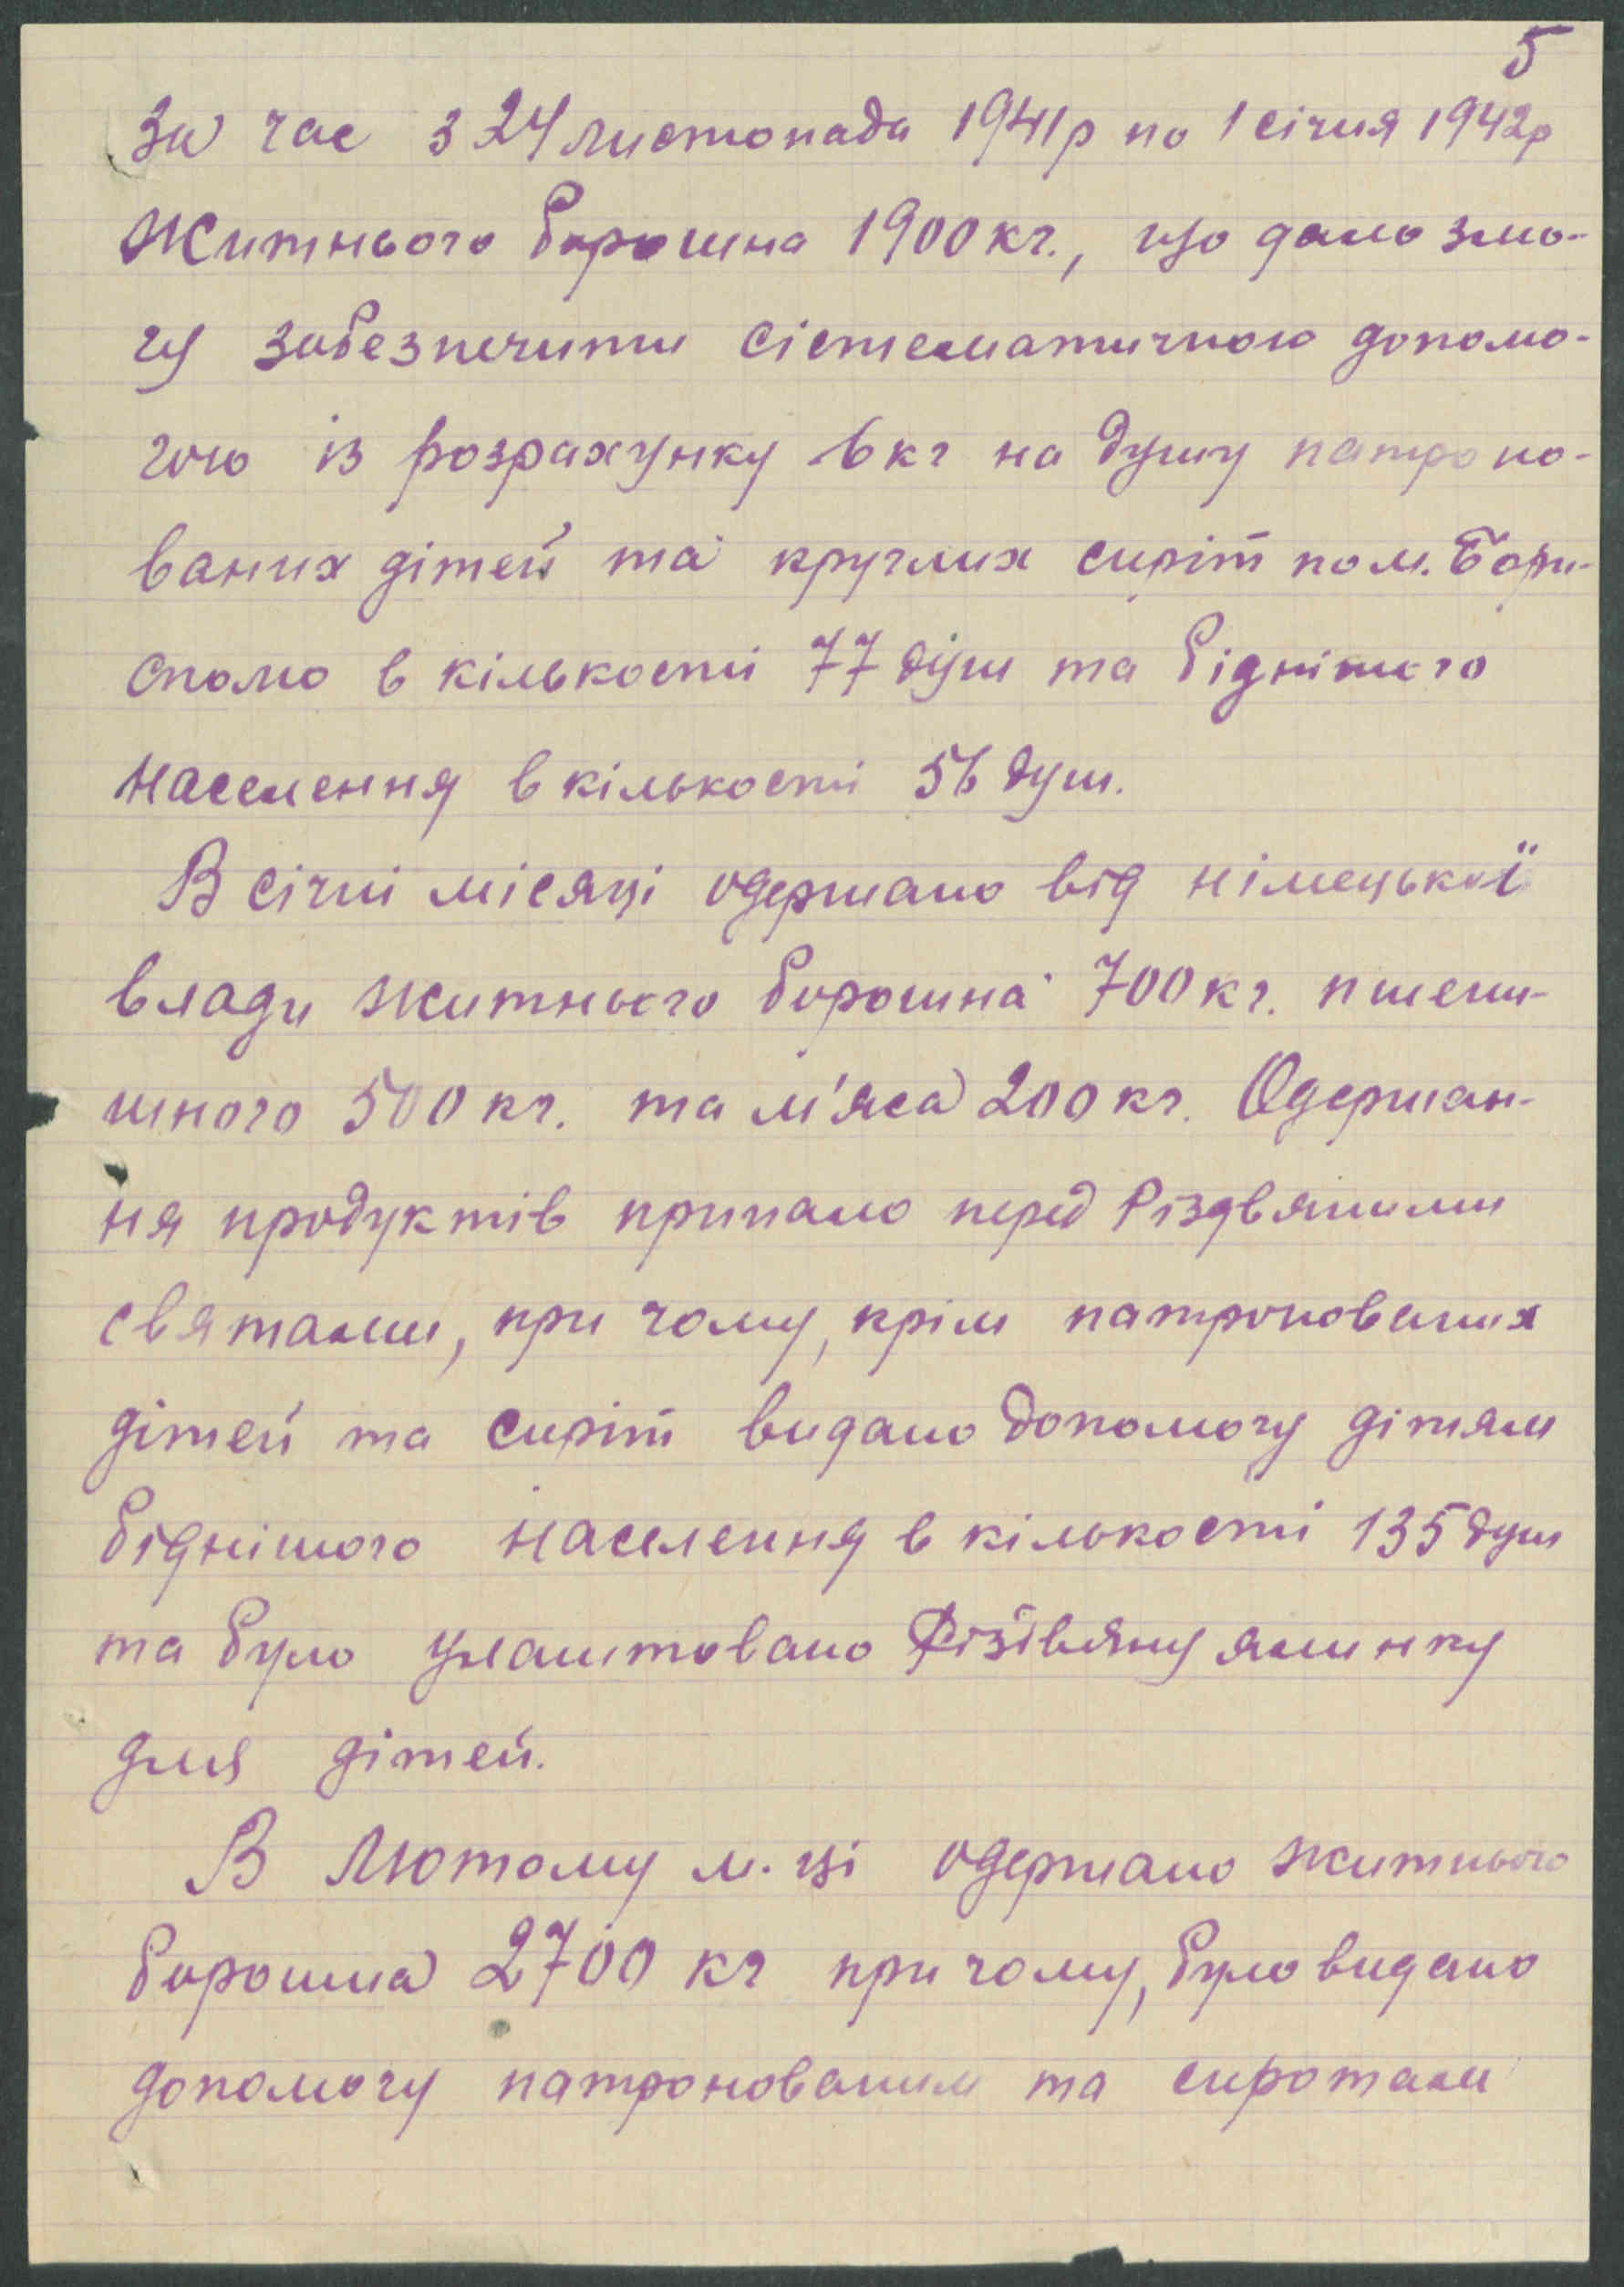 5
За час з 24 листопада 1941р по 1 січня 1942р
Житнього борошна 1900 кг., що дало змо-
гу забезпечити сістематичною допомо-
гою із розрахунку 6 кг на душу патроно-
ваних дітей та круглих сиріт по м. Бори-
сполю в кількості 77 душ та біднішого
населення в кількості 56 душ.
В січні місяці одержано від німецької
влади житнього борошна 700 кг. пшени-
шного 500 кг. та м'яса 200 кг. Одержан-
ня продуктів припало перед Різдвяними
святами, при чому, крім патронованих
дітей та сиріт видано допомогу дітям
біднішого населення в кількості 135 душ
та було улаштовано Різдвяну ялинку
для дітей.
В Лютому м-ці одержано житнього
борошна 2700 кг при чому, було видано
допомогу патронованим та сиротам